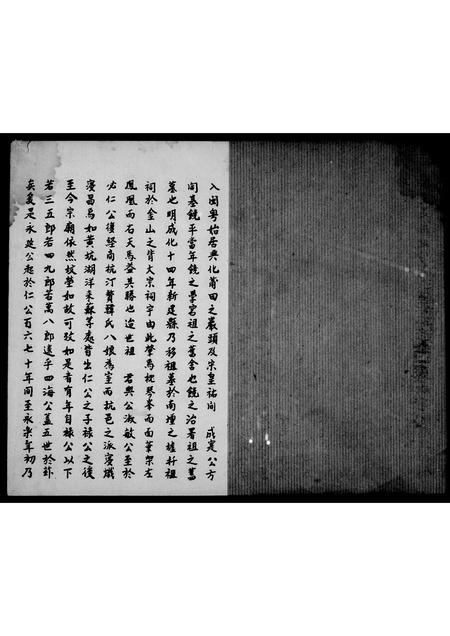 入閩粤始居興化莆田之巖頭及宋皇祐間 成寔公方
開基饒平當年饒之學宮祖之舊舍也饒之治署祖之舊
墓也明成化十四年新建縣乃移祖墓於南壇之
祠於金山之背大宗祠宇由此肇焉枕琴峯而面筆架左
鳳凰而右天馬益其勝也迨世祖 君與公淑敏公至於
必仁公復經商杭汀贅韓氏八娘為室而杭邑之派寖熾
寖昌焉如黄坑湖洋釆蘇等處皆生仁公之子禄公之後
至今宗廟依然坟瑩如故可攷如是者有年自禄公以下
若三五郎若四九郎若萬八郎遠乎四海公蓋五世於兹
矣爰是永廷公起於仁公百六七十年間至永樂年初乃